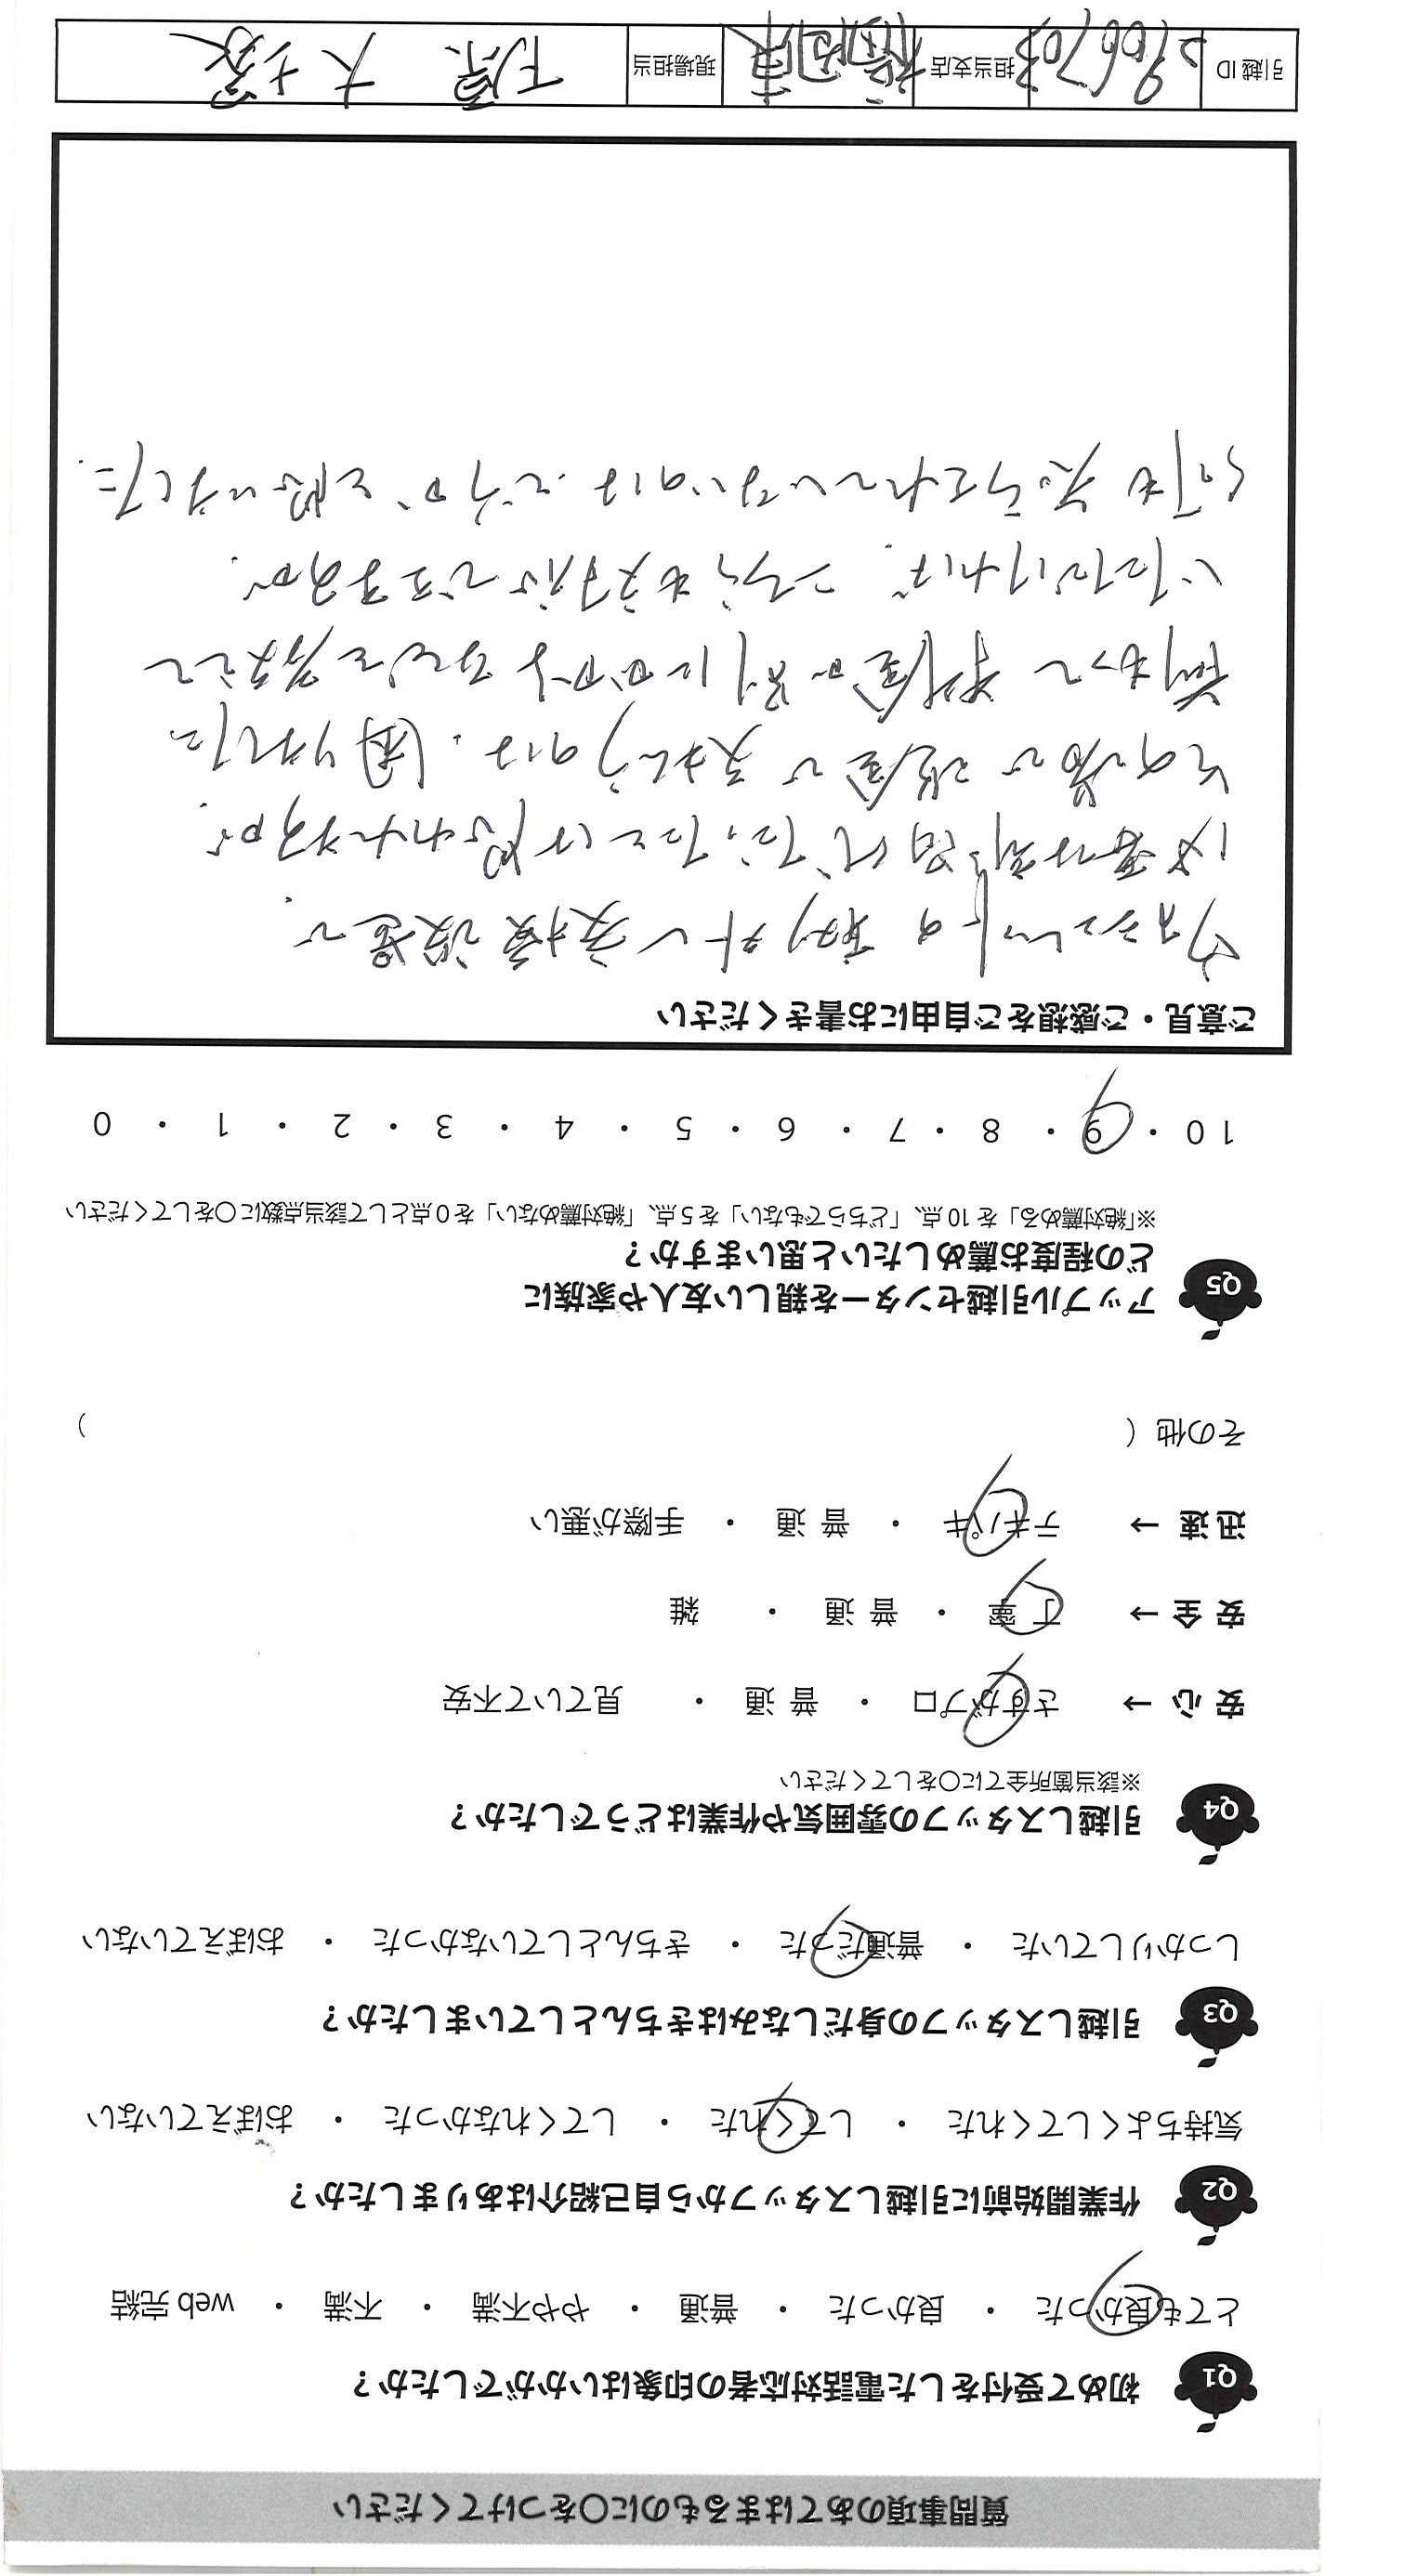 質問事項のあてはまるものに〇をつけてください
Q1 初めて受付をした電話対応者の印象はいかがでしたか？
とても良かった ・ 良かった ・ 普通 ・ やや不満 ・ 不満 ・ web 完結
Q2 作業開始前に引越しスタッフから自己紹介はありましたか？
気持ちよくしてくれた ・ してくれた ・ してくれなかった ・ おぼえていない
Q3 引越しスタッフの身だしなみはきちんとしていましたか？
しっかりしていた ・ 普通だった ・ きちんとしていなかった ・ おぼえていない
Q4 引越しスタッフの雰囲気や作業はどうでしたか？
※該当箇所全てに〇をしてください
安 心 → さすがプロ ・ 普 通 ・ 見ていて不安
安 全 → 丁 寧 ・ 普 通 ・ 雑
迅 速 → テキパキ ・ 普 通 ・ 手際が悪い
その他（ ）
Q5 アップル引越センターを親しい友人や家族に
どの程度お薦めしたいと思いますか？
※「絶対薦める」を 10 点、「どちらでもない」を 5 点、「絶対薦めない」を 0 点として該当点数に〇をしてください
10 ・ 9 ・ 8 ・ 7 ・ 6 ・ 5 ・ 4 ・ 3 ・ 2 ・ 1 ・ 0
ご意見・ご感想をご自由にお書きください
ウォシュレットの取り外し 直接設置で
必要な部品代だったとは思われますが、
その場で現金で支払うのは、困りました
前もって料金が別にかかるなどと教えて
いただければ、こちらも対応できますが、
何も知らされていないのは、どうか、と思いました。
引越 ID 2906703 担当支店 福岡東 現場担当 下原 大